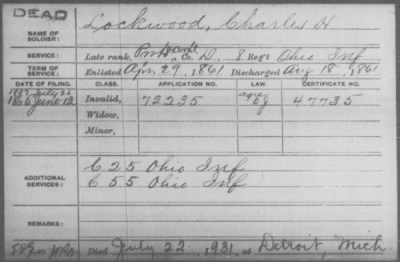 DEAD
NAME OF SOLDIER:
Lockwood, Charles H
SERVICE:
Late rank, Pvt Band Co. D. 8 Reg't Ohio Inf
TERM OF SERVICE:
Enlisted Apr. 29, 1861 Discharged Aug 18, 1861
DATE OF FILING. CLASS. APPLICATION NO. LAW. CERTIFICATE NO.
Invalid, 72235 47735
June 12
Widow,
Minor,
ADDITIONAL SERVICES:
C 25 Ohio Inf
C 55 Ohio Inf
REMARKS:
Died July 22, 1931, at Detroit, Mich.